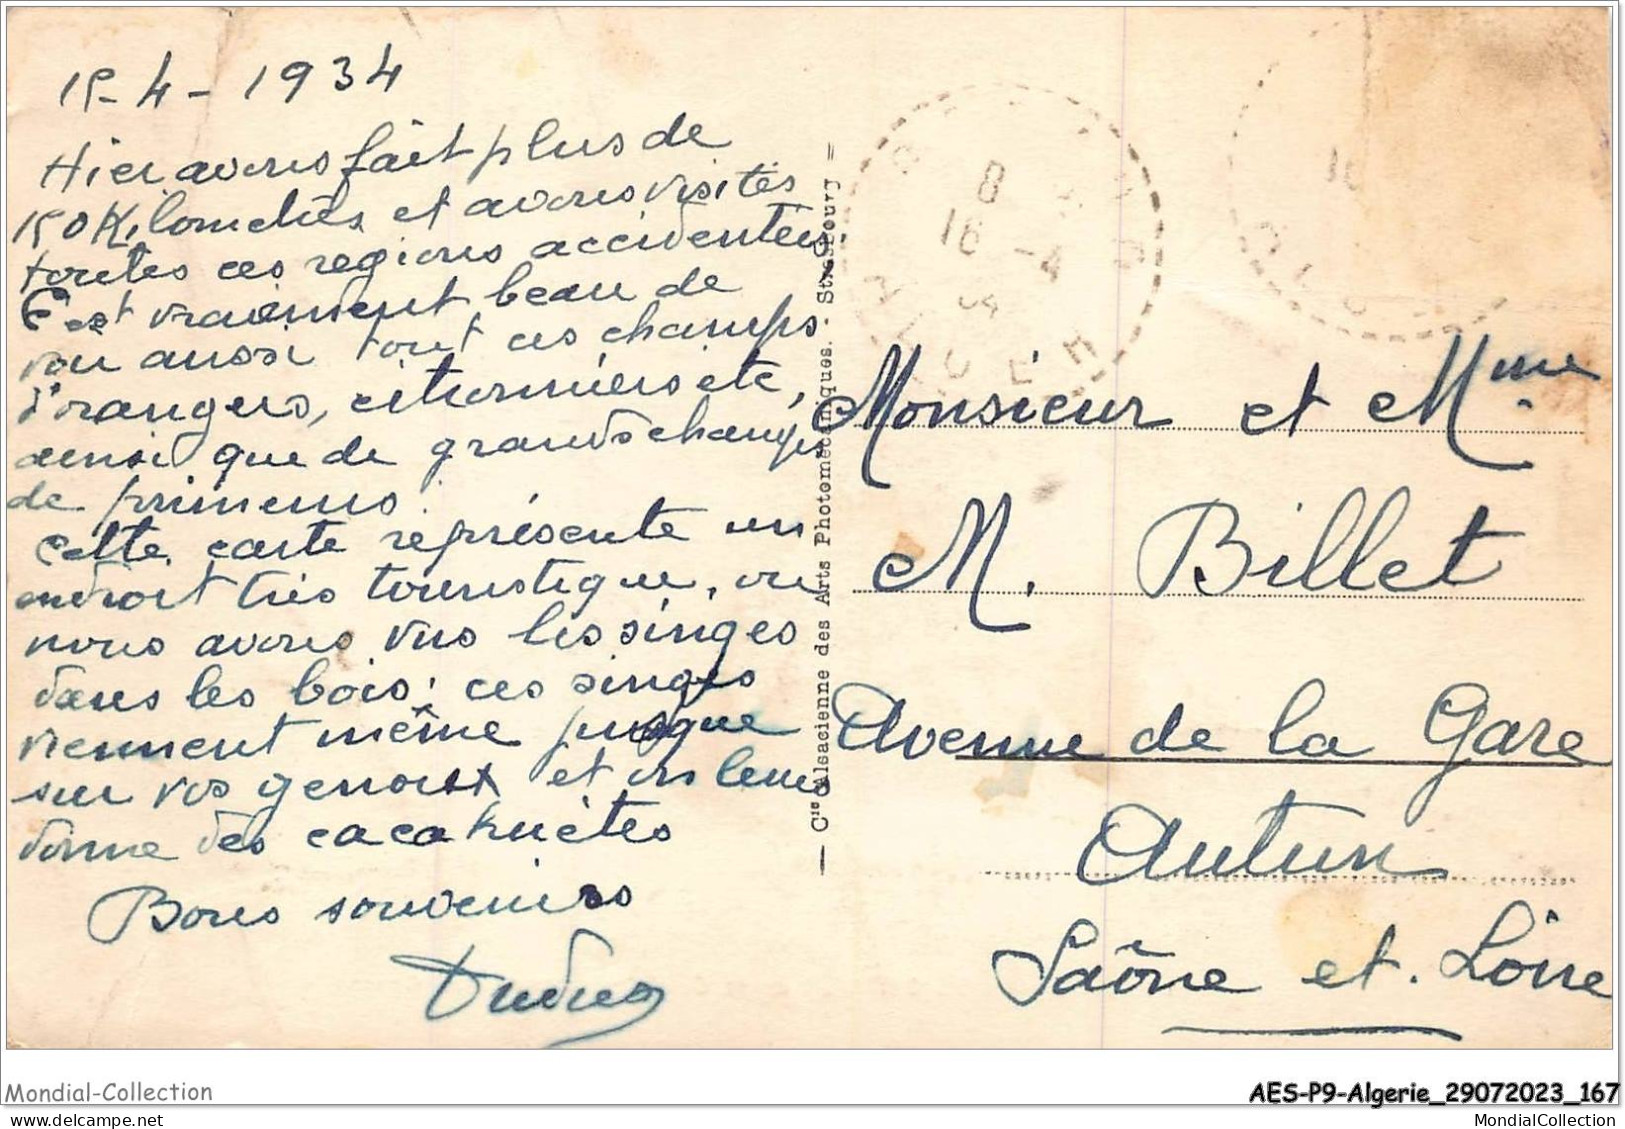 15-4-1934
Hier avons fait plus de
150 Kilomètres et avons visités
toutes ces regions accidentées.
C'est vraiment beau de
voir aussi tout ces champs
d'orangers, citronniers etc,
ainsi que de grands champs
de primeurs.
Cette carte représente un
endroit très touristique, ou
nous avons vus les singes
dans les bois; ces singes
viennent même jusque
sur vos genoux et on leur
donne des cacahuètes
Bons souvenirs
— Cie Alsacienne des Arts Photomécaniques. Strasbourg —
8
16 -4
34
ALGER
16
Monsieur et Mme
M. Billet
Avenue de la Gare
Autun
Saône et. Loire
Mondial-Collection
AES-P9-Algerie_29072023_167
delcampe.net
MondialCollection